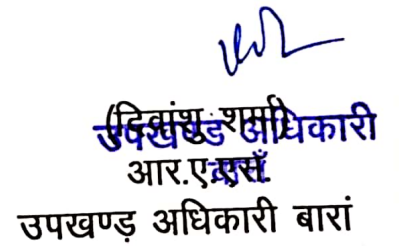 (दिव्यांशु शर्मा)
उपखण्ड अधिकारी
आर.ए.एस.
बाराँ
उपखण्ड़ अधिकारी बारां